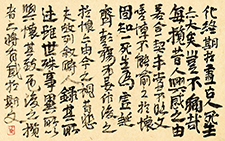 化終期於盡古人云死生
亦大矣豈不痛哉
每攬昔人興感之由
若合一契未嘗不臨文
嗟悼不能喻之於懷
固知一死生為虛誕
齊彭殤為妄作後之視今
亦由今之視昔悲
夫故列敘時人錄其所
述雖世殊事異所以
興懷其致一也後之攬
者亦將有感於斯文